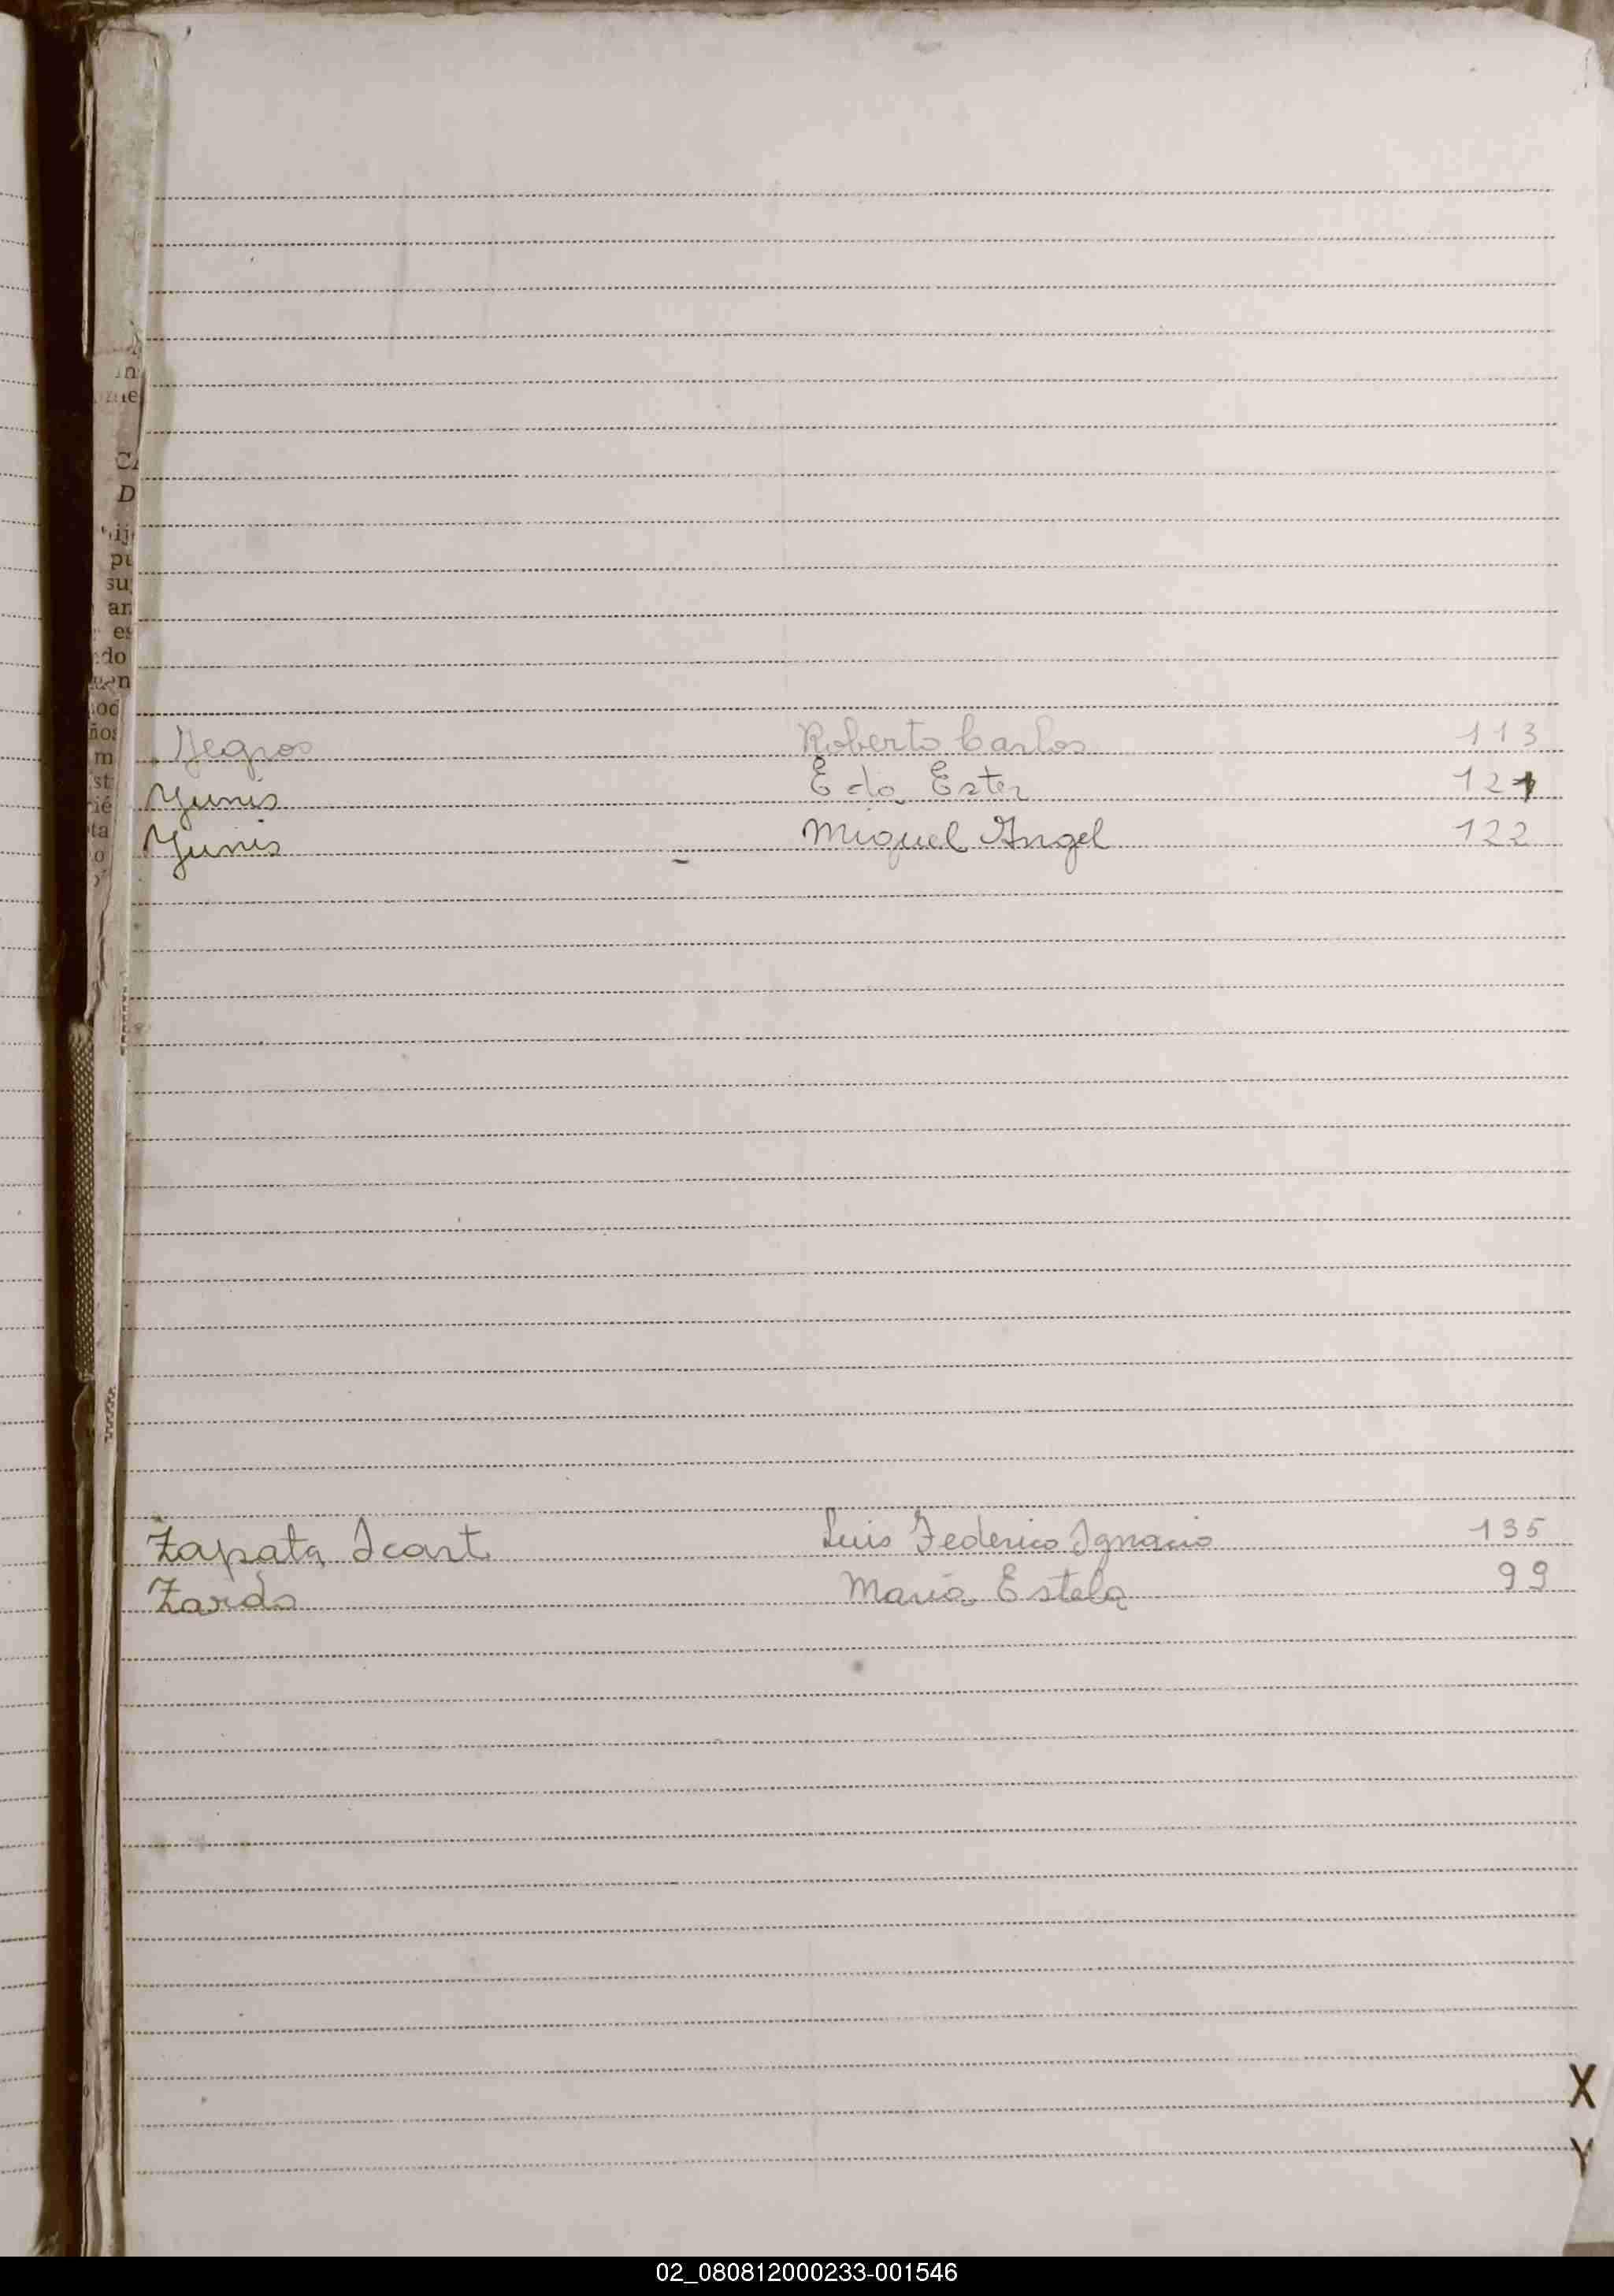 Yegros Roberto Carlos 113
Yunis Eda Ester 121
Yunis Miguel Angel 122
Zapata Icart Luis Federico Ignacio 135
Zardo Maria Estela 99
X
Y
02_080812000233-001546